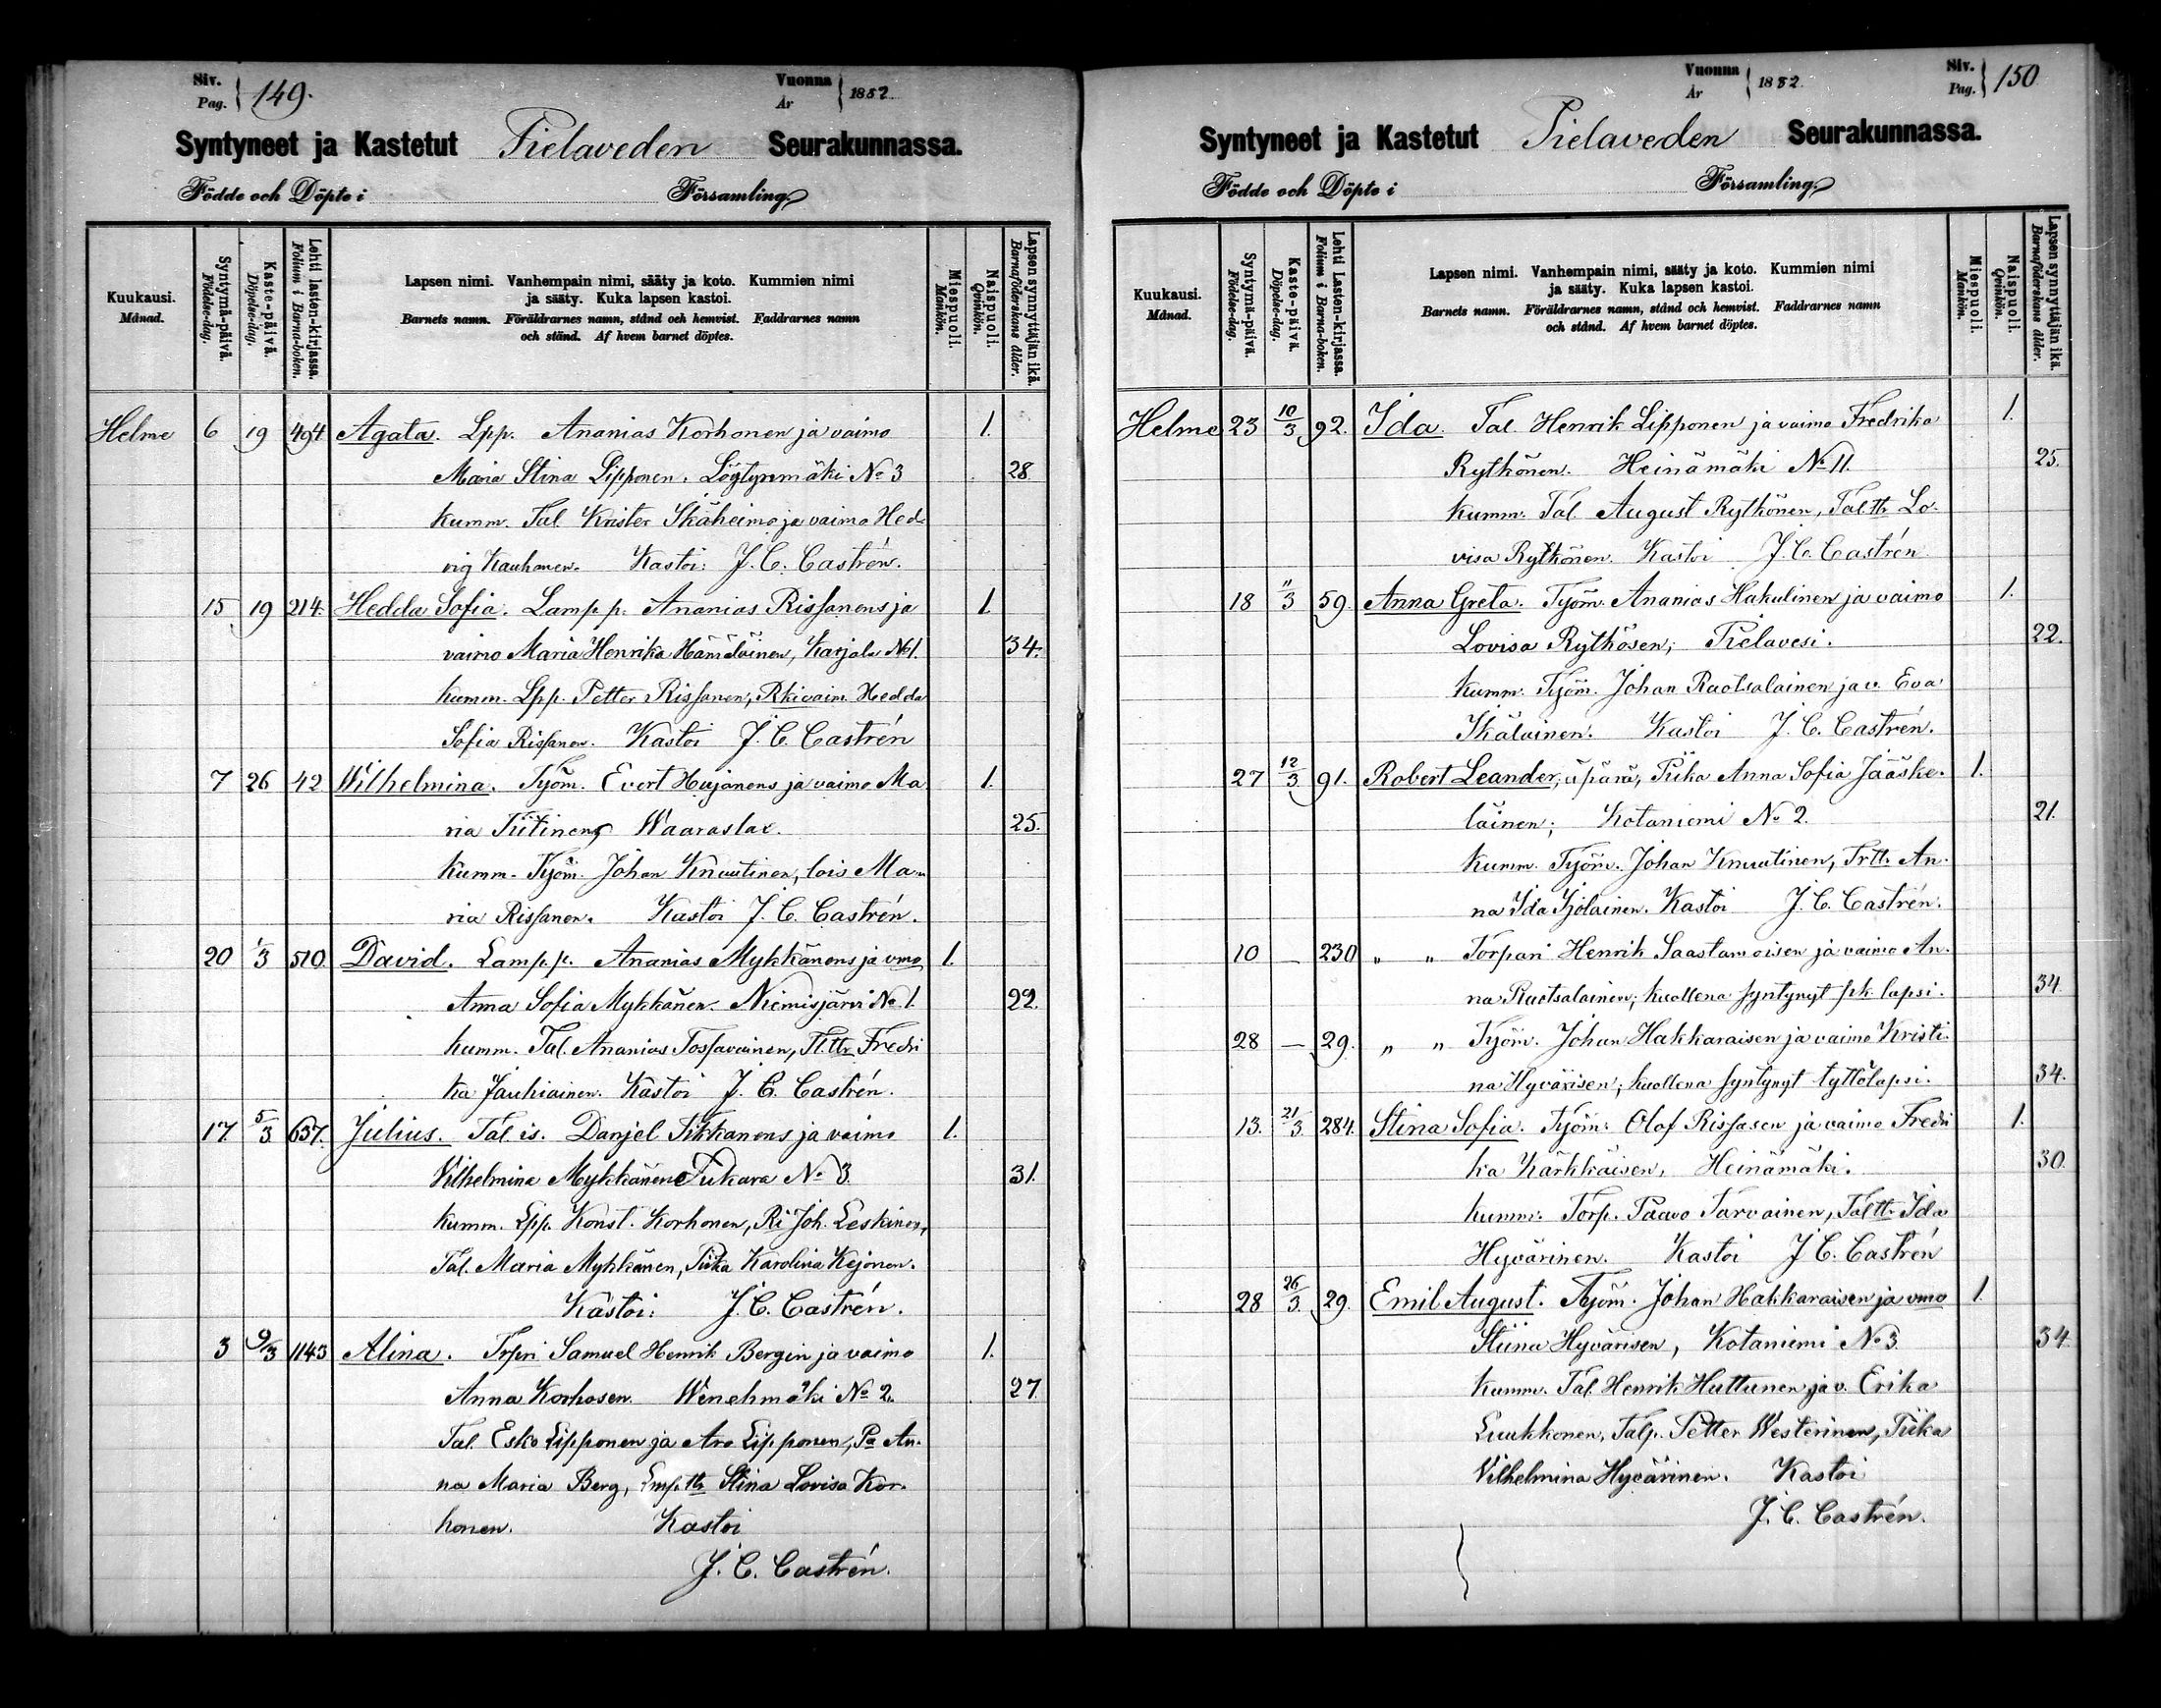 Siv. Pag. 149. Vuonna År 1882
Syntyneet ja Kastetut Pielaveden Seurakunnassa.
Födde och Döpte i Församling
Kuukausi. Månad.
Syntymä-päivä. Födelse-dag.
Kaste-päivä. Döpelse-dag.
Lehti lasten-kirjassa. Folium i Barna-boken.
Lapsen nimi. Vanhempain nimi, sääty ja koto. Kummien nimi
ja sääty. Kuka lapsen kastoi.
Barnets namn. Föräldrarnes namn, stånd och hemvist. Faddrarnes namn
och stånd. Af hvem barnet döptes.
Miespuoli. Mankön.
Naispuoli. Qvinkön.
Lapsen synnyttäjän ikä. Barnaföderskans ålder.
Helme 6 19 494 Agata. Lpp. Ananias Korhonen ja vaimo 1.
Maria Stina Lipponen. No 3 28
kumm. Tal. Krister Ikäheimo ja vaimo Hed-
vig Kauhanen. Kastoi: J. C. Castrén.
15 19 214. Hedda Sofia. Lamp.p. Ananias Rissanens ja 1.
vaimo Maria Henrika Hämäläinen, Karjala No 1. 34.
kumm. Lpp. Petter Rissanen, Rkivaim. Hedda
Sofia Rissanen. Kastoi J. C. Castrén
7 26 42 Wilhelmina. Työm. Evert Hujanens ja vaimo Ma 1.
ria Tiitinens Waaraslax. 25.
kumm. Työm. Johan Knuutinen, lois Ma-
ria Rissanen. Kastoi J. C. Castrén.
20 1/3 510. David. Lamp.p. Ananias Mykkänens ja vmo 1.
Anna Sofia Mykkänen. Niemisjärvi No 1. 22.
kumm. Tal. Ananias Tossavainen, Tl.ttr Fredri
ka Jauhiainen. Kastoi J. C. Castrén.
17 5/3 637. Julius. Tal. is. Danjel Tikkanens ja vaimo 1.
Vilhelmina Mykkänen Jukara No 3. 31.
kumm. Lpp. Konst. Korhonen, Ri Joh. Leskinen,
Tal. Maria Mykkänen, Piika Karolina Kejonen.
Kastoi: J. C. Castrén.
3 9/3 1143 Alina. Trpri Samuel Henrik Bergin ja vaimo 1.
Anna Korhosen. Wenehmäki No 2. 27.
Tal. Esko Lipponen ja Aro Lipponen, Pa An-
na Maria Berg, Lmp.ttr Stina Lovisa Kor-
honen. Kastoi
J. C. Castrén.
Vuonna År 1882. Siv. Pag. 150
Syntyneet ja Kastetut Pielaveden Seurakunnassa.
Födde och Döpte i Församling
Kuukausi. Månad.
Syntymä-päivä. Födelse-dag.
Kaste-päivä. Döpelse-dag.
Lehti Lasten-kirjassa. Folium i Barna-boken.
Lapsen nimi. Vanhempain nimi, sääty ja koto. Kummien nimi
ja sääty. Kuka lapsen kastoi.
Barnets namn. Föräldrarnes namn, stånd och hemvist. Faddrarnes namn
och stånd. Af hvem barnet döptes.
Miespuoli. Mankön.
Naispuoli. Qvinkön.
Lapsen synnyttäjän ikä. Barnaföderskans ålder.
Helme 23 10/3 92. Ida. Tal. Henrik Lipponen ja vaimo Fredrika 1.
Rytkönen. Heinämäki No 11. 25.
kumm. Tal. August Rytkönen, Tal.ttr Lo-
visa Rytkönen. Kastoi J. C. Castrén
18 "/3 59. Anna Greta. Työm. Ananias Hakulinen ja vaimo 1.
Lovisa Rytkösen; Pielavesi. 22.
kumm. Työm. Johan Ruotsalainen ja v. Eva
Ikäläinen. Kastoi J. C. Castrén.
27 12/3 91. Robert Leander, äpärä, Piika Anna Sofia Jääske- 1.
läinen; Kotaniemi No 2. 21.
kumm. Työm. Johan Knuutinen, Tr.ttr An-
na Ida Yjölainen. Kastoi J. C. Castrén.
10 — 230 " " Torpari Henrik Saastamoisen ja vaimo An-
na Ruotsalainen; kuollena syntynyt pk. lapsi. 34
28 — 29. " " Työm. Johan Hakkaraisen ja vaimo Kristi-
na Hyvärisen; kuollena syntynyt tyttölapsi. 34.
13. 21/3 284. Stina Sofia. Työm. Olof Rissasen ja vaimo Fredri 1.
ka Kärkkäisen, Heinämäki. 30.
kumm. Torp. Paavo Tarvainen, Tal.ttr. Ida
Hyvärinen. Kastoi J. C. Castrén
28 26/3 29. Emil August. Työm. Johan Hakkaraisen ja vmo 1.
Stiina Hyvärisen, Kotaniemi No 3. 34
kumm. Tal. Henrik Huttunen ja v. Erika
Luukkonen, Talp. Petter Westerinen, Piika
Vilhelmina Hyvärinen. Kastoi
J. C. Castrén.